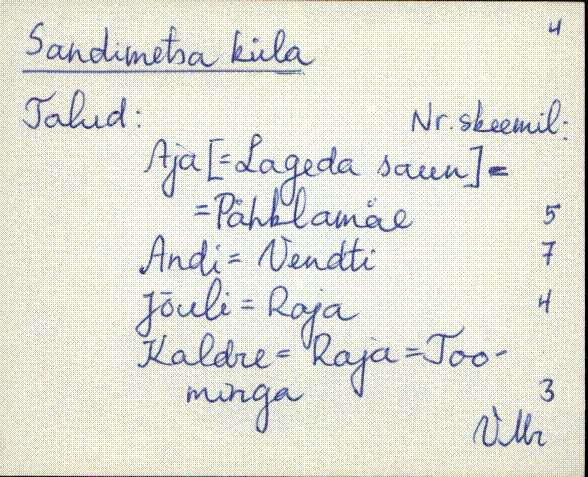 4
Sandimetsa küla
Talud: Nr. skeemil:
Aja [=Lageda saun]=
=Pähklamäe 5
Andi = Vendti 7
Jõuli = Raja 4
Kaldre = Raja = Too-
minga 3